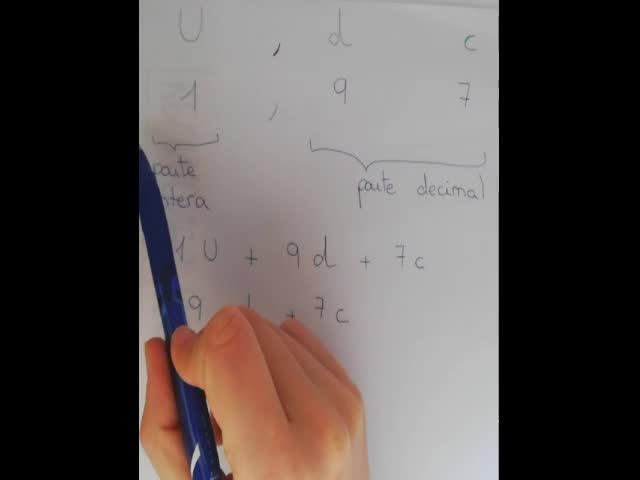 U , d c
1 , 9 7
parte parte decimal
1 U + 9 d + 7 c
9 + 7 c